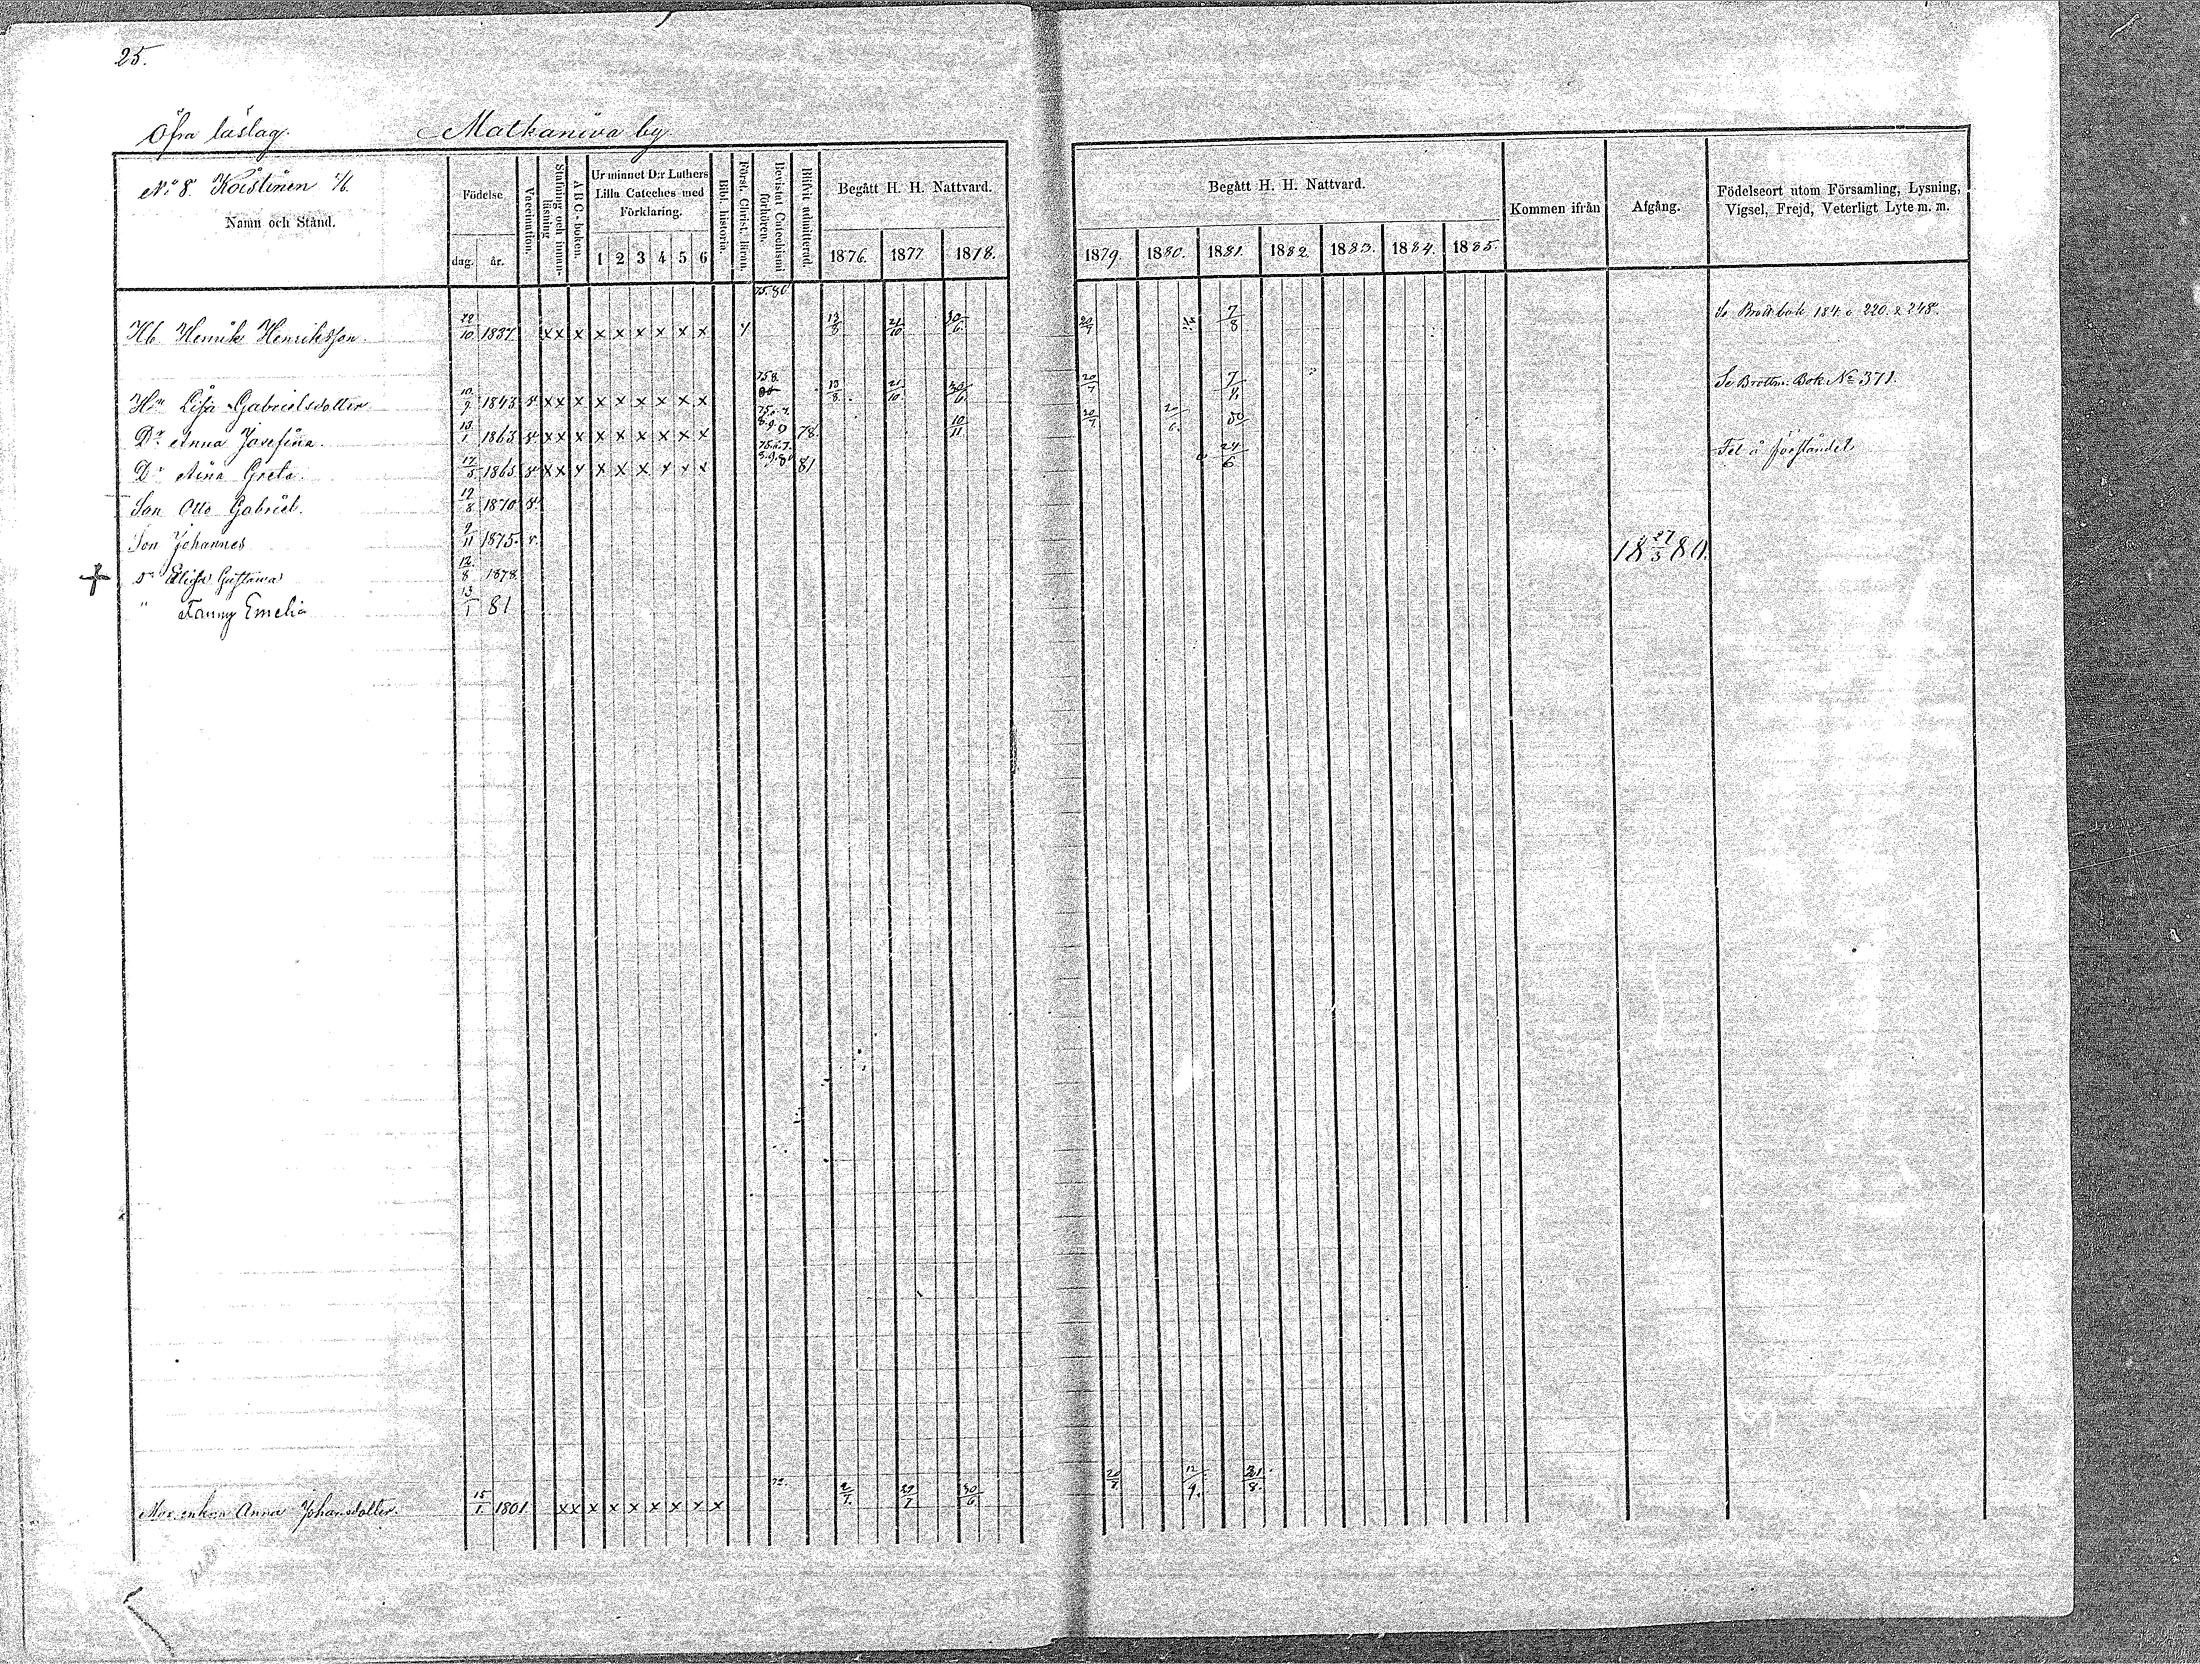 25.
Öfra läslag. Matkaniva by
No 8. Koistinen
Namn och Stånd.
Födelse
dag. år.
Vaccination.
Stafning och innan-läsning
ABC-boken.
Ur minnet D:r Luthers Lilla Cateches med Förklaring.
1 2 3 4 5 6
Bibl. historia.
Först. Christ. lläran.
Bevistat Catechismi förhören.
Blifvit admitterad.
Begått H. H. Nattvard.
1876. 1877. 1878.
Begått H. H. Nattvard.
1879. 1880. 1881. 1882. 1883. 1884. 1885.
Kommen ifrån
Afgång.
Födelseort utom Församling, Lysning, Vigsel, Frejd, Veterligt Lyte m. m.
Hb Henrik Henriksson. 22/10 1837 x x x x x x x x x 13/8 21/10 30/6 20/7 7/8 Se Brottbok 184. o 220. & 248.
Hu Lisa Gabrielsdotter 10/9 1843 x x x x x x x x x 13/8 21/10 30/6 20/7 7/8 Se Brottm. Bok No 371.
Dr Anna Josefina. 13/1 1863 x x x x x x x x x 78 10/11 20/7 20/6
Dr Aina Greta. 17/5 1865 x x x x x x x x x 81 24/6 Fel å förståndet
Son Otto Gabriel. 12/8 1870
Son Johannes 9/11 1875. v.
+ Dr Elisa Gustava 12/8 1878 18 27/3 80.
" Fanny Emelia 13/1 81
Mor. enkan Anna Johansdotter. 15/1 1801 x x x x x x x x x 2/7 29/7 30/6 20/7 12/9 21/8